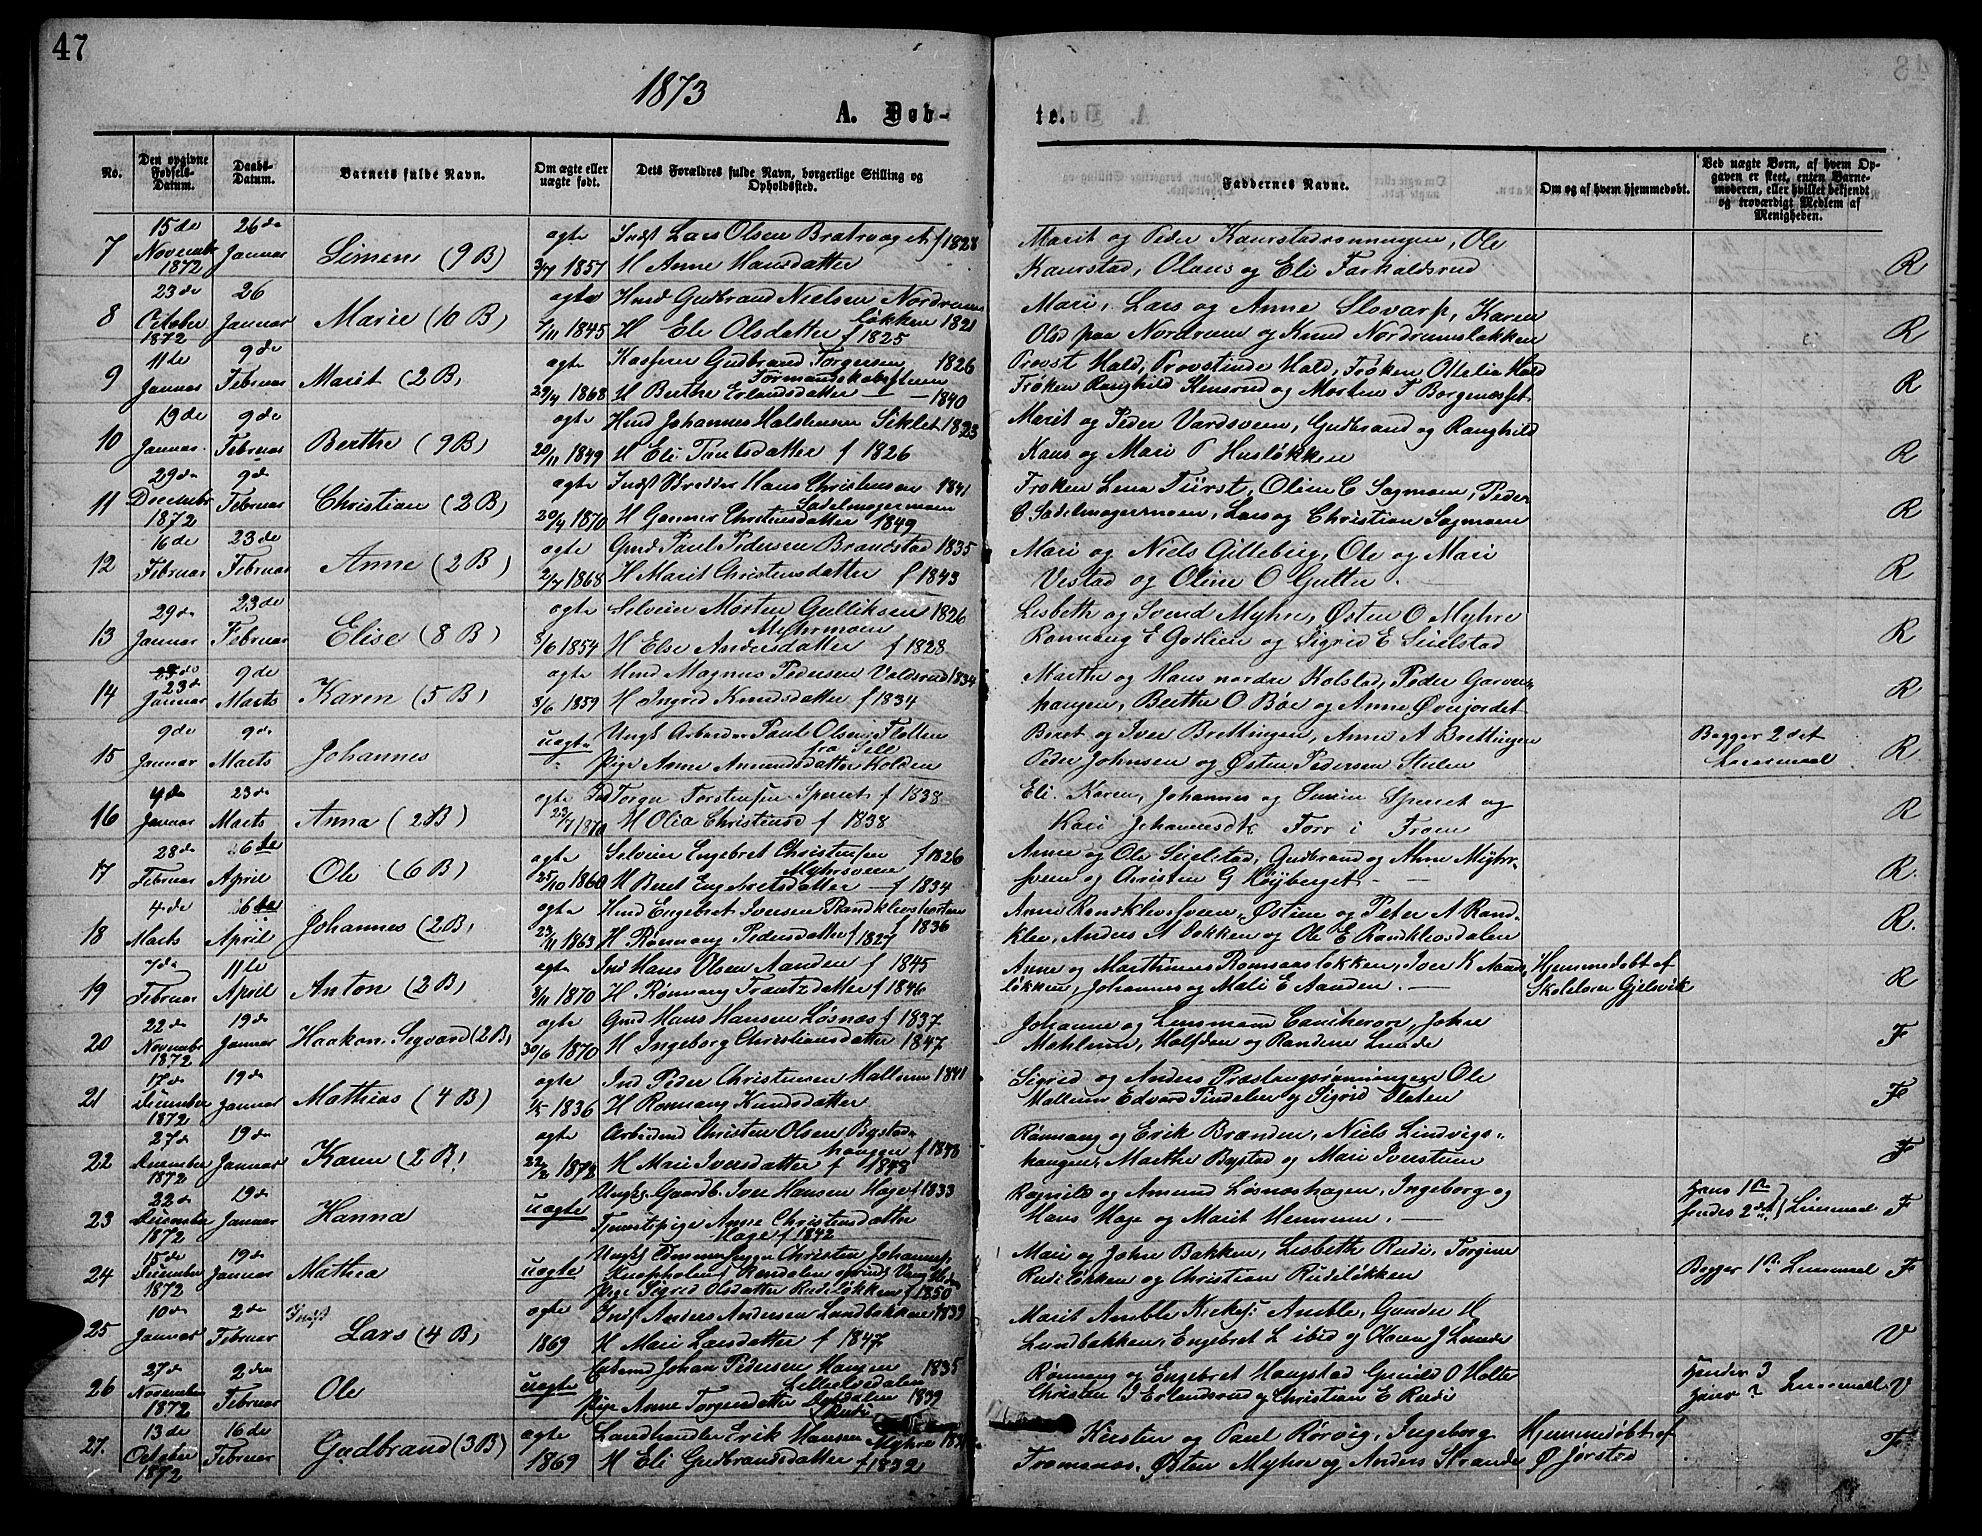 47
1873
A. Døb-
te.
No.
Den opgivne Fødsels-Datum.
Daabs-Datum.
Barnets fulde Navn.
Om ægte eller uægte født.
Dets Forældres fulde Navn, borgerlige Stilling og Opholdssted.
Faddernes Navne.
Om og af hvem hjemmedøbt.
Ved uægte Børn, af hvem Opgaven er skeet, enten Barnemoderen, eller hvilket bekjendt og troværdigt Medlem af Menigheden.
7 15de Novemb 1872 26de Januar Simen (9 B) ægte 1857 Indst Lars Olsen f 1828
H Anne Hansdatter
Marit og Peder Kaurstadrønningen, Ole
Kaurstad, Olaus og Eli Farhaldsrud R
8 23de October 1872 26 Januar Marie (10 B) ægte 1845 Hmd Gudbrand Nielsen Nordrums
løkken 1821
H Eli Olsdatter f 1825
Mari, Lars og Anne Slovarp, Karen
Olsd paa Nordrum og Knud Nordrumsløkken R
9 11te Januar 9de Februar Marit (2 B) ægte 29/4 1868 Gudbrand Torgersen 1826
H Berthe Erlandsdatter — 1840
Provst Hald, Provstinde Hald, Frøken Ottelia Hald
Frøken Ranghild Kensrud og Morten T Borgenæsset R
10 19de Januar 9de Februar Berthe (9 B) ægte 20/11 1849 Hmd Johannes Halstensen Siklet 1823
H Eli Paulsdatter f 1826
Marit og Peder Vardsveen, Gudbrand og Ranghild
Kaus og Mari P Husløkken R
11 29de December 1872 9d Februar Christian (2 B) ægte 20/4 1870 Indst Hans Christensen 1841
Sadelmagermoen
H Gunner Christensdatter 1849
Frøken Lena Fürst, Oline C Sagmoen, Peder
C Sadelmagermoen, Lars og Christian Sagmoen R
12 16de Februar 23de Februar Anne (2 B) ægte 2/7 1868 Gmd Paul Pedersen Brandstad 1835
H Marit Christensdatter f 1843
Mari og Niels Gilleberg, Ole og Mari
Vestad og Oline O Gutter. R
13 29de Januar 23de Februar Elise (8 B) ægte 8/6 1854 Selveier Morten Gulliksen 1826
Myhrmoen
H Else Andersdatter f 1828
Lisbeth og Svend Myhre, Østen O Myhre
Rønnaug E Gorlien og Sigrid E Sielstad R
14 23de Januar 9de Marts Karen (5 B) ægte 8/6 1859 Hmd Magnus Pedersen Voldsrud 1834
H Ingrid Knudsdatter f 1834
Marthe og Hans nordre Kolstad, Peder Garver-
haugen, Berthe O Bøe og Anne Øverjordet R
15 9de Januar 9de Marts Johannes uægte Ungk Arbeider Paul Olsen Flotten
fra Sell
Pige Anne Amundsdatter Kolden
Beret og Iver Brettingen, Anne A Brettingen
Peder Johnsen og Østen Pedersen Steilen
Begger 2det
Leiermaal R
16 4de Januar 23de Marts Anna (2 B) ægte 23/7 1870 Torger Torstensen Sperret f 1838
H Olia Christensd f 1838
Eli, Karen, Johannes og Simen Sperret og
Kari Johannesdtr Torr i Fron R
17 28de Februar 16de April Ole (6 B) ægte 25/10 1860 Selveier Engebret Christensen f 1826
Myhrsveen
H Beret Engebretsdatter — f 1834
Anne og Ole Seielstad, Gudbrand og Anne Myhr-
sveen og Christen G Høyberget — R.
18 4de Marts 16de April Johannes (2 B) ægte 23/11 1863 Hmd Engebret Iversen Randklevshorten f 1836
H Rønnaug Pedersdatter f 1827
Anne Randklevsveen, Østine og Peter A Rand-
klev, Anders A Bakken og Ole E Randklevsdalen R.
19 7de Februar 11te April Anton (2 B) ægte 8/11 1870 Ind Hans Olsen Aanden f 1845
H Rønnaug Frantzdatter f 1846
Anne og Marthinus Romsaasløkken, Iver K Aand-
løkken, Johannes og Mali E Aanden. —
Hjemmedøbt af
Skolelærer Gjelsvik R
20 22de Novembr 1872 19de Januar Haakon Segvard (2 B) ægte 30/6 1870 Gmd Hans Hansen Løsnæs f 1837
H Ingeborg Christiansdatter 1847
Johanne og Lensmand Caucheron, John
Mehlum, Halfdan og Randine Lunde F
21 17de December 1872 19de Januar Mathias (4 B) ægte 1836 Ind Peder Christensen Mallum 1841
H Rønnaug Knudsdatter
Sigrid og Anders Præstengsrønningen Ole
Mallum Edvard Pindelen og Sigrid Flaten F
22 27de December 1872 19de Januar Karen (2 B) ægte 22/2 1872 Arbeidsmd Christen Olsen Bystad-
haugen f 1848
H Mari Iversdatter f 1848
Rønnaug og Erik Brænden, Niels Lindvigs-
haugen, Marthe Bystad og Mari Iverstuen F
23 22de December 1872 19de Januar Hanna uægte Ungk. Gaardb. Iver Hansen Hage f 1833
Tjenestpige Anne Christensdatter
Hage f 1842
Ragnild og Amund Løsnæshagen, Ingeborg og
Hans Hage og Marit Hemrum. —
Hans 1ste
hendes 2det Leiermaal F
24 15de December 1872 19de Januar Mathea uægte Ungk Tømmerhugger Christen Johannes
Pige Sigrid Olsdatter Rudiløkken f 1850
Mari og John Bakken, Lisbeth Rudi, Torgine
Rudiløkken og Christian Rudiløkken
Begger 1ste Leiermaal F
25 10de Januar 2de Februar Lars (4 B) ægte 1869 Indst Anders Andersen Lundbakken 1839
H Mari Larsdatter f 1847
Marit Amble, Amble, Gunder H
Lundbakken, Engebret L ibid og Karen J Lunde V
26 27de November 1872 2den Februar Ole uægte Johan Pedersen Haugen 1835
Lilleelvedalen
Pige Anne Torgersdatter 1839
Rønnaug og Engebret Haugstad Gunild O Holte
Christen J Erlandsrud og Christian E Rudi
Hendes 3
hans 2 Leiermaal V
27. 13de October 1872 16de Februar Gudbrand (3 B) ægte 1869 Landhandler Erik Hansen Myhre
H Eli Gudbrandsdatter f 1832
Kirsten og Paul Rørvig, Ingeborg
Tromsnæs, Østen Myhre og Anders Strande
Hjemmedøbt af
Ø Jørstad F